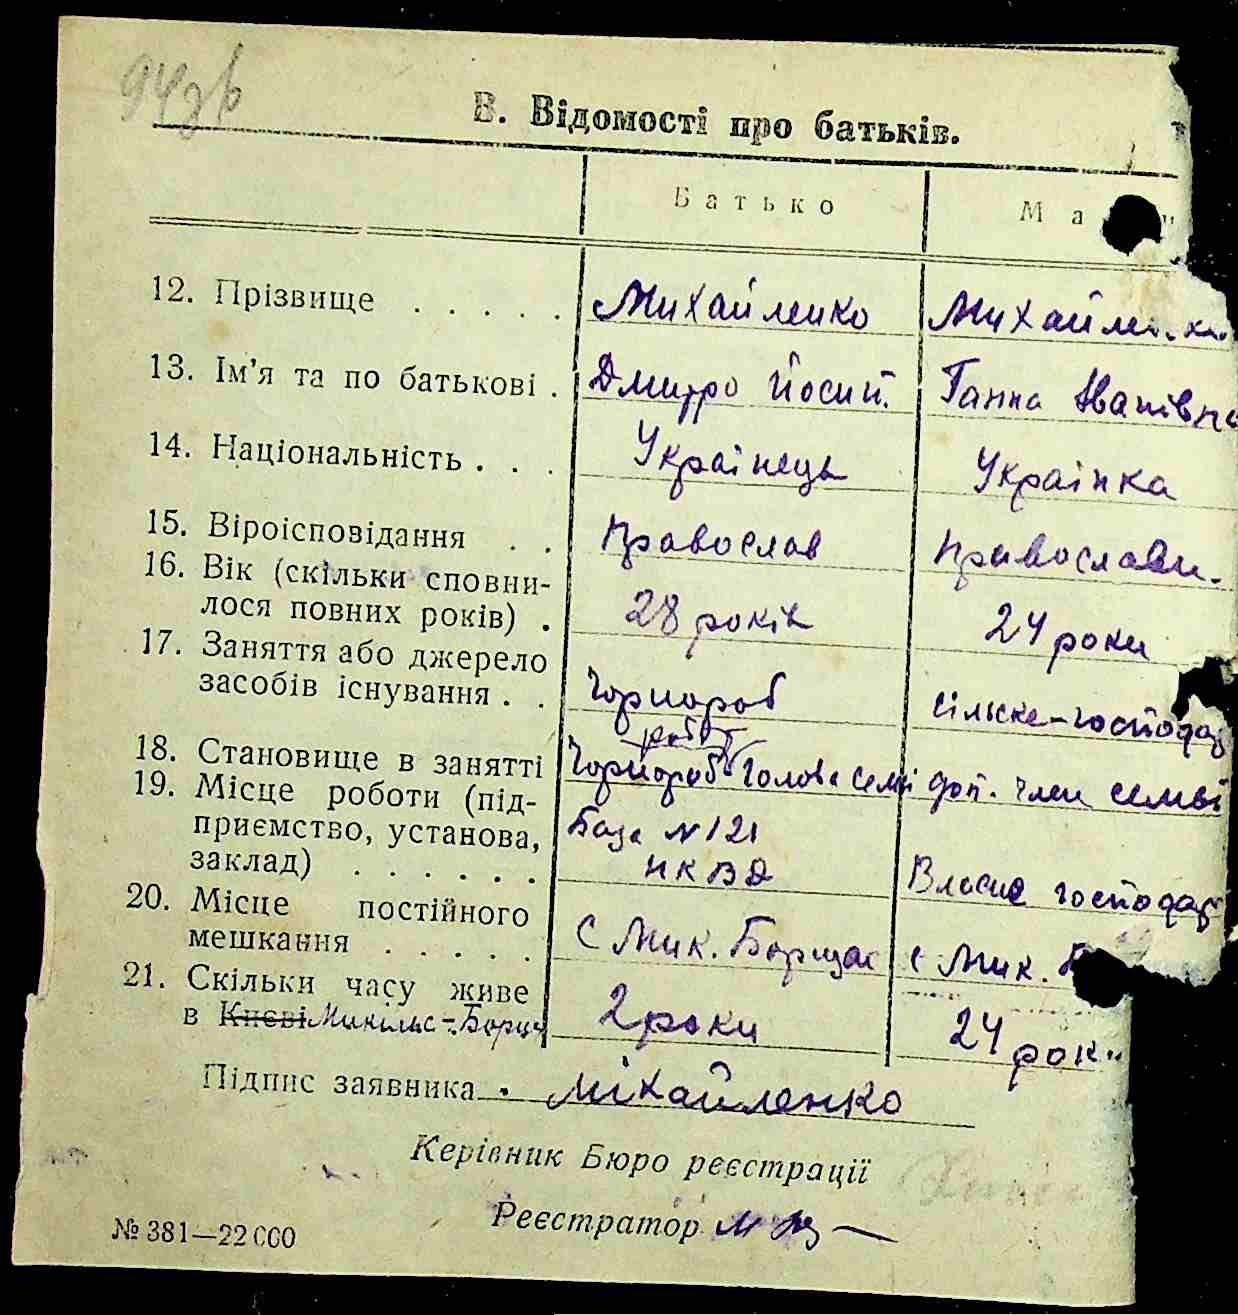 94зв
В. Відомості про батьків.
Батько Ма
12. Прізвище . . . . . Михайленко Михайленко
13. Ім'я та по батькові . Дмитро Йосип. Ганна Іванівна
14. Національність . . . Українець Українка
15. Віроісповідання . . Православ Православн.
16. Вік (скільки сповни-
лося повних років) . 28 років 24 роки
17. Заняття або джерело
засобів існування . . Чорнороб сільске-господар
робіт
18. Становище в занятті Чорнороб Голова семі доп. член семьі
19. Місце роботи (під-
приємство, установа, База № 121
заклад) . . . . . . НКВД Власне господар
20. Місце постійного
мешкання . . . . . С Мик. Борщаг с Мик. Б
21. Скільки часу живе
в Києві Микільс-Борщ 2 роки 24 рок
Підпис заявника . Міхайленко
Керівник Бюро реєстрації
Реєстратор
№ 381—22 000